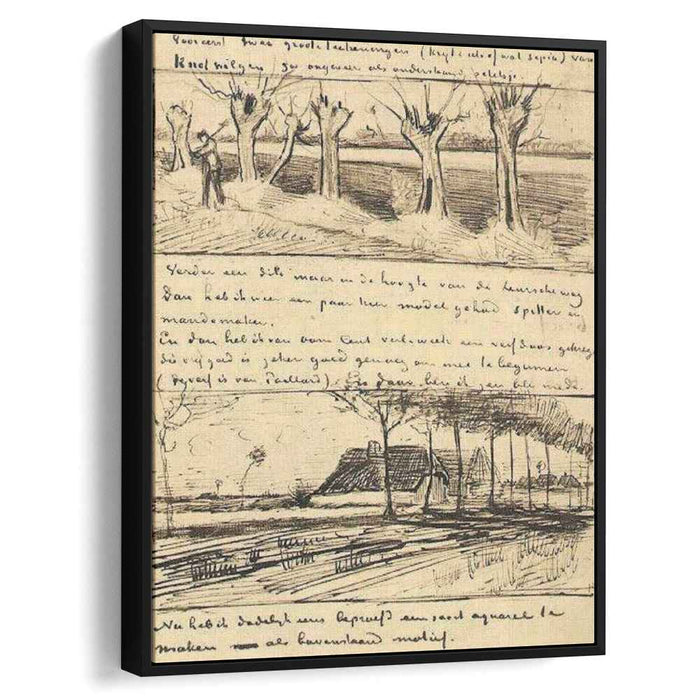 Vooreerst twee groote teekeningen (krijt en ofwat sepia) van
Knotwilgen zoo ongeveer als onderstaand petetje.
Verder een dito maar in de hoogte van de Leurscheweg
Dan heb ik weer een paar keer model gehad Spitter en
mandemaker.
En dan heb ik van oom Cent verl. week een verfdoos gekregen
die vrij goed is zeker goed genoeg om mee te beginnen
(de verf is van Paillard). En daar ben ik zeer blij mede.
Nu heb ik dadelijk eens beproefd een soort aquarel te
maken als bovenstaand motief.